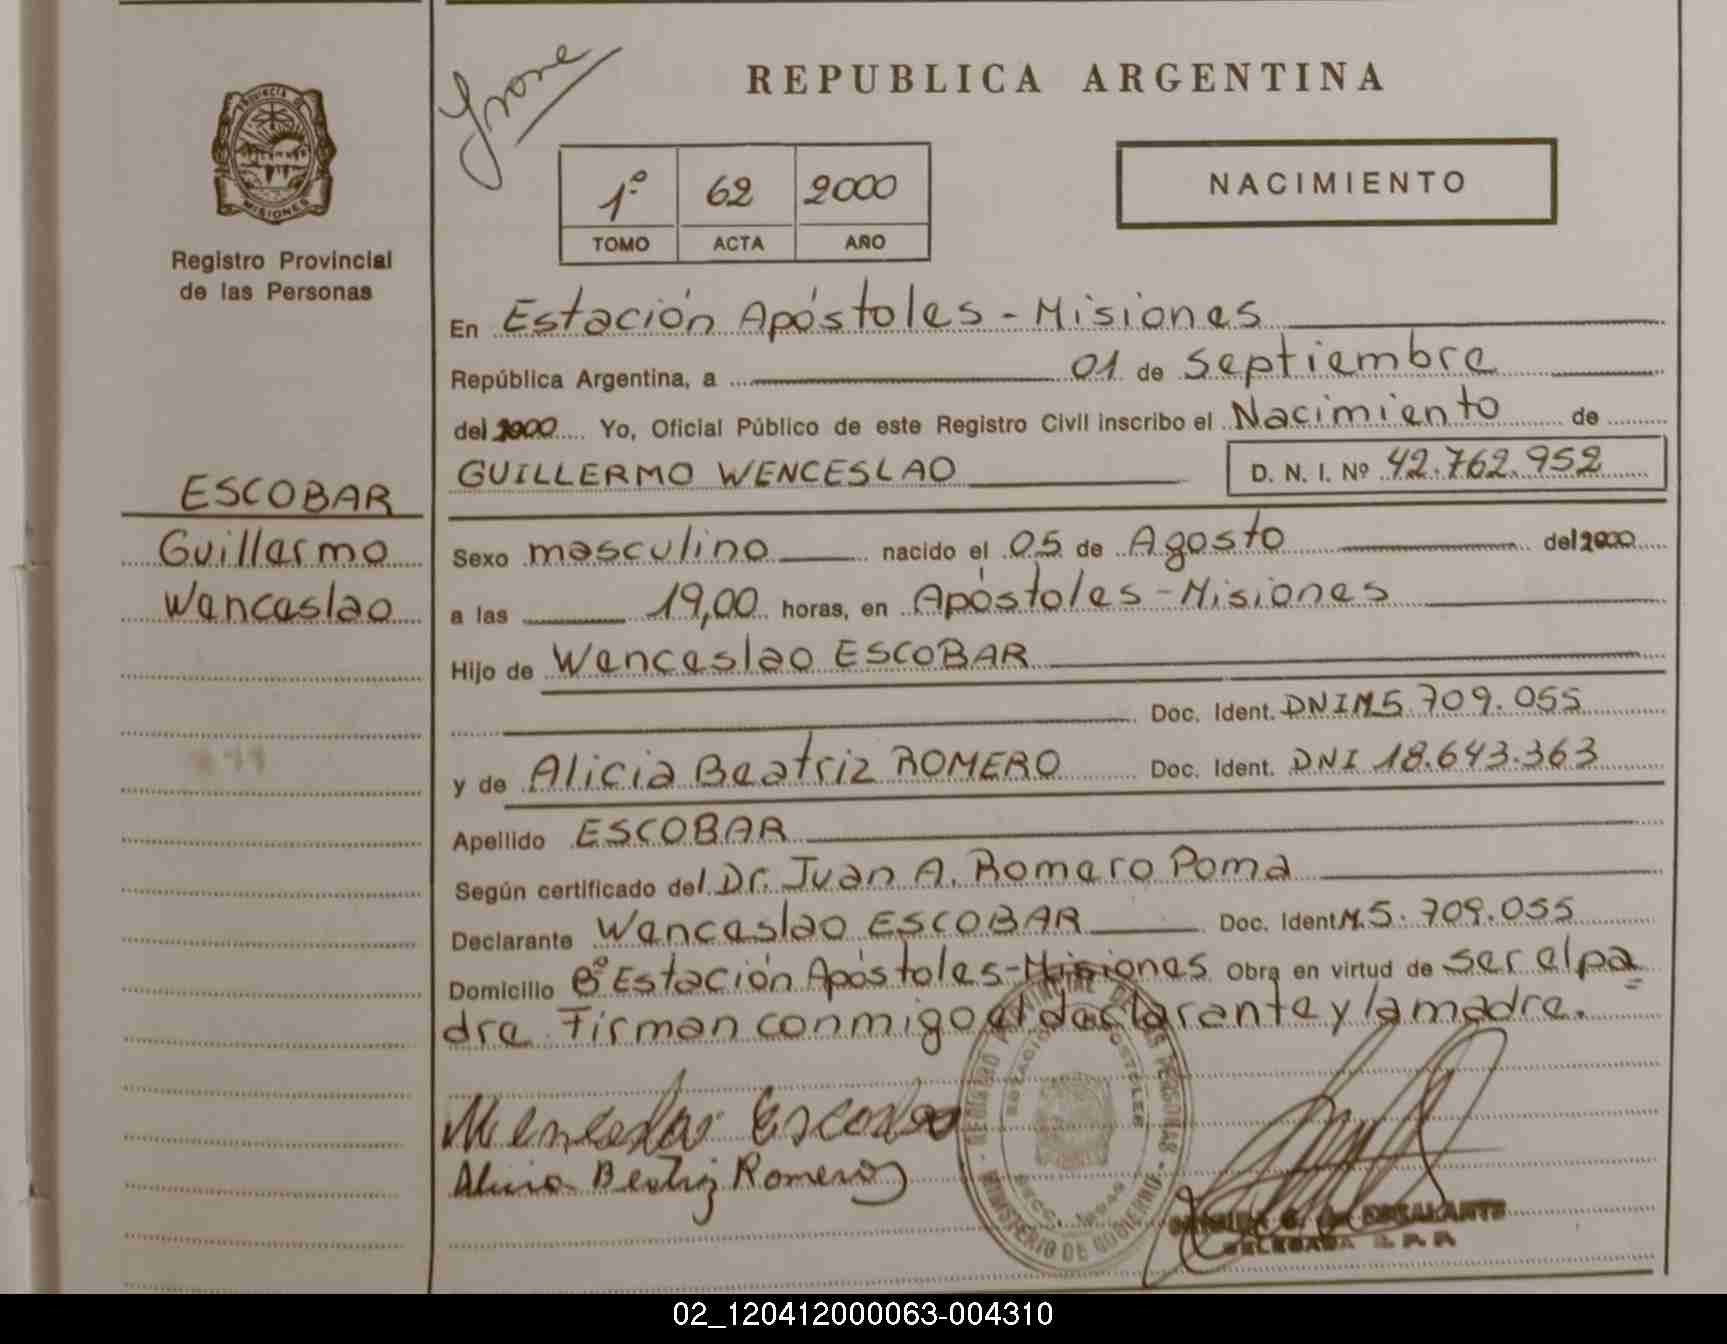 REPUBLICA ARGENTINA
PROVINCIA DE
MISIONES
Registro Provincial
de las Personas
1º 62 2000
TOMO ACTA AÑO
NACIMIENTO
En Estación Apóstoles - Misiones
República Argentina, a 01 de septiembre
del 2000 Yo, Oficial Público de este Registro Civil inscribo el Nacimiento de
GUILLERMO WENCESLAO D. N. I. Nº 42.762.952
ESCOBAR
Guillermo
Wenceslao
Sexo masculino nacido el 05 de Agosto del 2000
a las 19,00 horas, en Apóstoles - Misiones
Hijo de Wenceslao ESCOBAR
Doc. Ident. DNI M5.709.055
y de Alicia Beatriz ROMERO Doc. Ident. DNI 18.643.363
Apellido ESCOBAR
Según certificado del Dr. Juan A. Romero Poma
Declarante Wenceslao ESCOBAR Doc. Ident M5.709.055
Domicilio Bº Estación Apóstoles - Misiones Obra en virtud de ser el pa
dre. Firman conmigo el declarante y la madre.
Wenceslao Escobar
Alicia Beatriz Romero
REGISTRO PROVINCIAL DE LAS PERSONAS
MINISTERIO DE GOBIERNO
DELEGADA R. P. P.
02_120412000063-004310